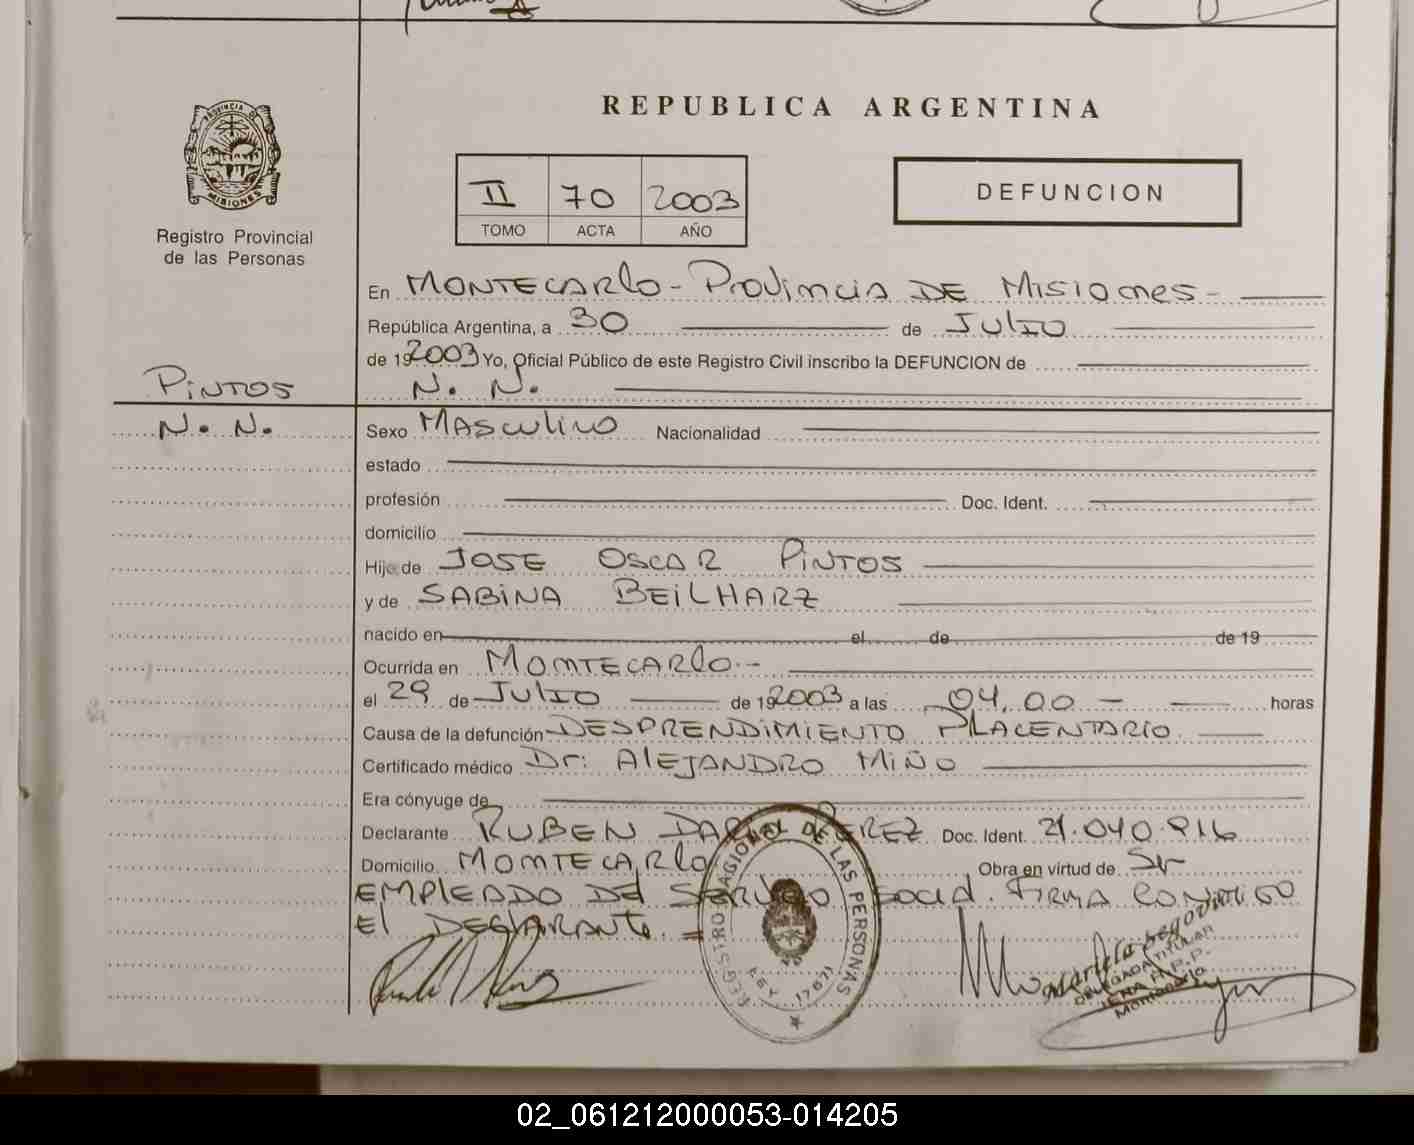 REPUBLICA ARGENTINA
PROVINCIA
MISIONES
Registro Provincial
de las Personas
II 70 2003
TOMO ACTA AÑO
DEFUNCION
En MONTECARLO - PROVINCIA DE MISIONES -
República Argentina, a 30 de JULIO
de 192003 Yo, Oficial Público de este Registro Civil inscribo la DEFUNCION de
PINTOS N. N.
N. N. Sexo MASCULINO Nacionalidad
estado
profesión Doc. Ident.
domicilio
Hijo de JOSE OSCAR PINTOS
y de SABINA BEILHARZ
nacido en el de de 19
Ocurrida en MONTECARLO.-
el 29 de JULIO de 192003 a las 04,00 - horas
Causa de la defunción DESPRENDIMIENTO PLACENTARIO
Certificado médico Dr: ALEJANDRO MIÑO
Era cónyuge de
Declarante RUBEN DARIO PEREZ Doc. Ident. 21.040.916
Domicilio MONTECARLO Obra en virtud de Sr
EMPLEADO DEL SERVICIO Social. FIRMA CONMIGO
El DECLARANTE. =
REGISTRO DE LAS PERSONAS
LEY 17671
DELEGADA TITULAR
02_061212000053-014205